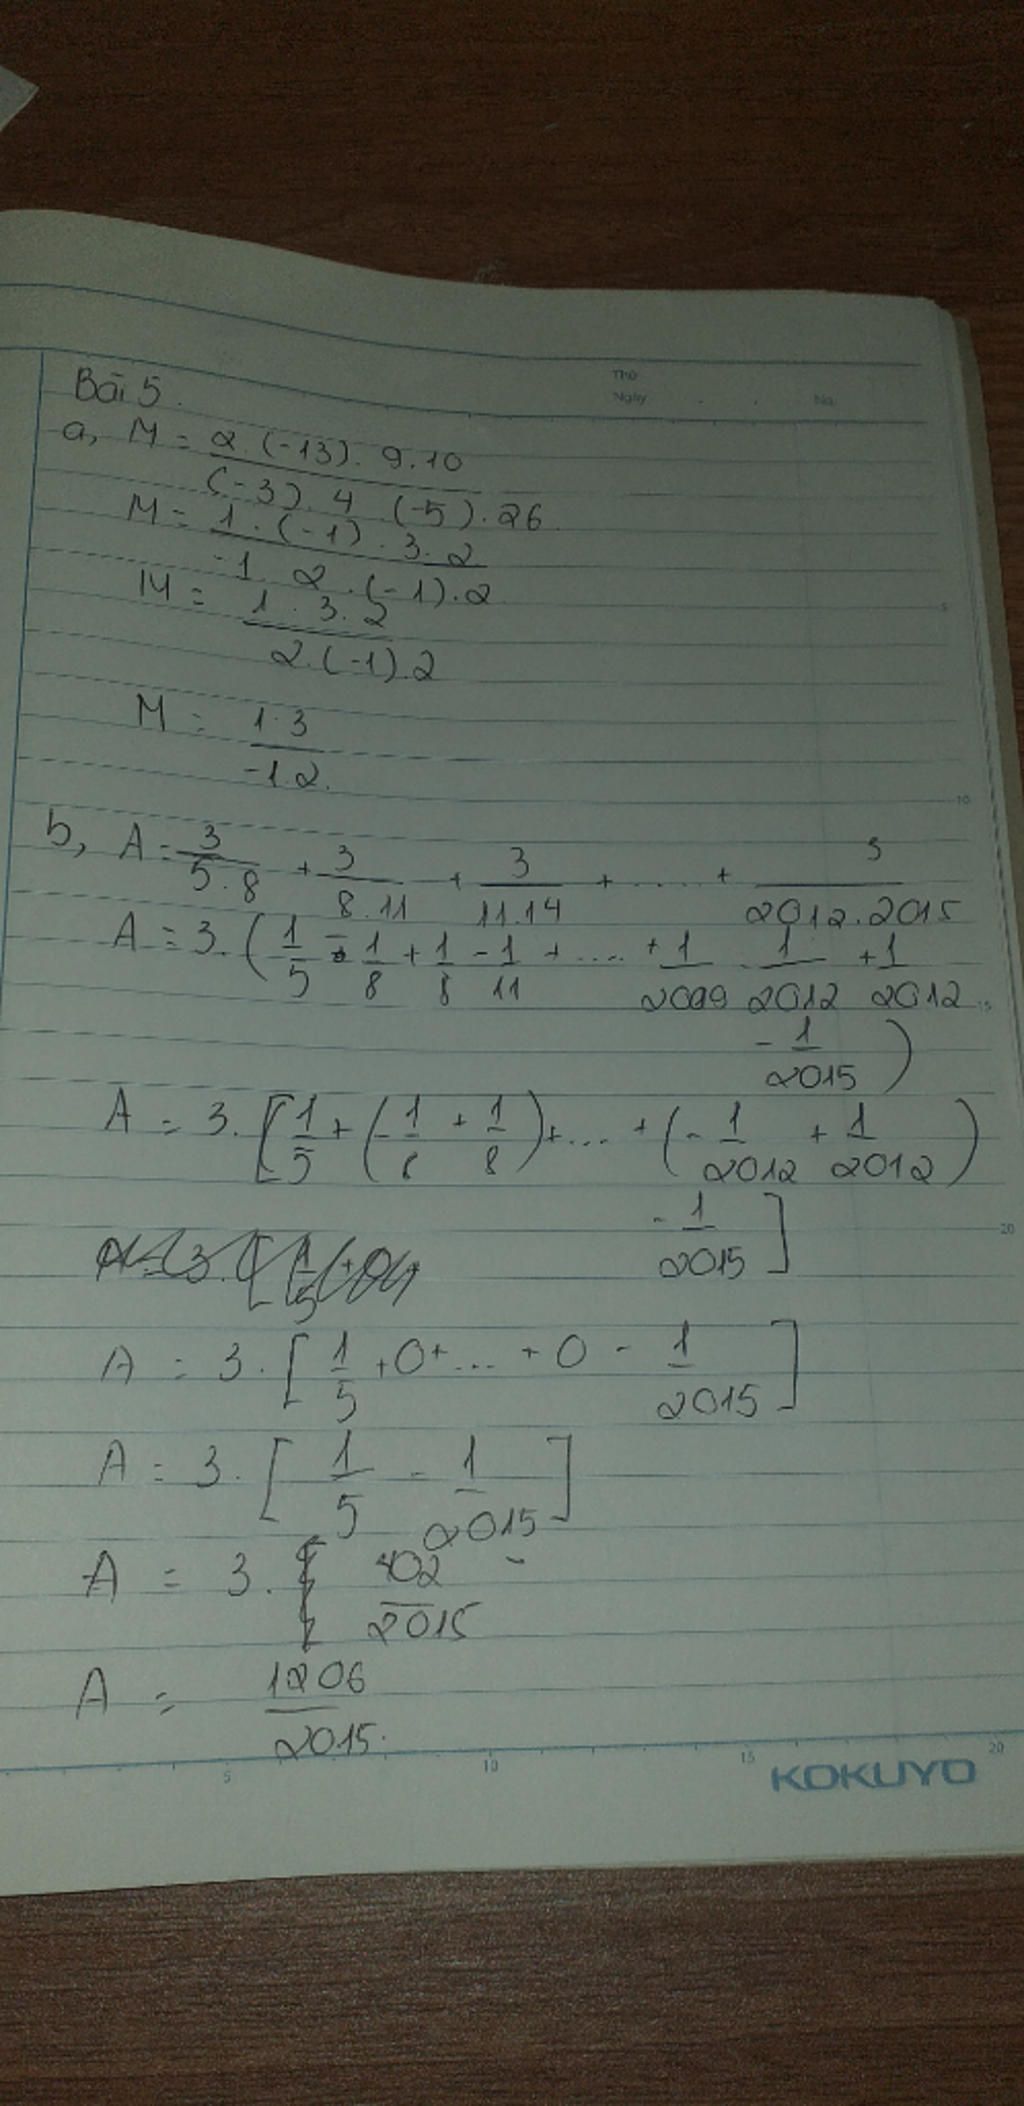 Thứ
Ngày . . No.
Bài 5.
a, M = 2.(-13).9.10 / (-3).4.(-5).26
M = 1.(-1).3.2 / -1.2.(-1).2
M = 1.3.2 / 2.(-1).2
M = 1.3 / -1.2.
b, A = 3/5.8 + 3/8.11 + 3/11.14 + ..... + 3/2012.2015
A = 3.(1/5 - 1/8 + 1/8 - 1/11 + .... + 1/2009 - 1/2012 + 1/2012
- 1/2015)
A = 3.[1/5 + (-1/8 + 1/8) + ... + (-1/2012 + 1/2012)
- 1/2015]
A = 3.[1/5 + 0 + ... + 0 - 1/2015]
A = 3.[1/5 - 1/2015]
A = 3. 402/2015
A = 1206/2015.
5 10 15 20
KOKUYO